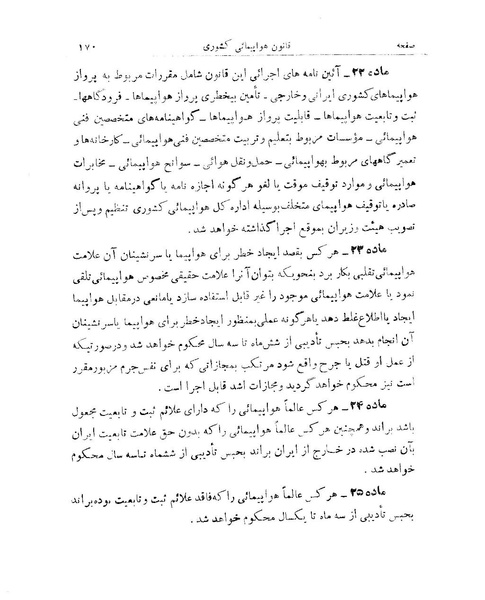 صفحه قانون هواپیمائی کشوری ۱۷۰
ماده ۲۲ ـ آئین نامه های اجرائی این قانون شامل مقررات مربوط به پرواز
هواپیماهای کشوری ایرانی و خارجی ـ تأمین بیخطری پرواز هواپیماها ـ فرودگاهها ـ
ثبت و تابعیت هواپیماها ـ قابلیت پرواز هواپیماها ـ گواهینامه‌های متخصصین فنی
هواپیمائی ـ مؤسسات مربوط بتعلیم و تربیت متخصصین فنی هواپیمائی ـ کارخانه‌ها و
تعمیرگاههای مربوط بهواپیمائی ـ حمل و نقل هوائی ـ سوانح هواپیمائی ـ مخابرات
هواپیمائی و موارد توقیف موقت یا لغو هر گونه اجازه نامه یا گواهینامه یا پروانه
صادره یا توقیف هواپیمای متخلف بوسیله اداره کل هواپیمائی کشوری تنظیم و پس از
تصویب هیئت وزیران بموقع اجرا گذاشته خواهد شد .
ماده ۲۳ ـ هر کس بقصد ایجاد خطر برای هواپیما یا سرنشینان آن علامت
هواپیمائی تقلبی بکار برد بنحویکه بتوان آنرا علامت حقیقی مخصوص هواپیمائی تلقی
نمود یا علامت هواپیمائی موجود را غیر قابل استفاده سازد یا مانعی در مقابل هواپیما
ایجاد یا اطلاع غلط دهد یا هر گونه عملی بمنظور ایجاد خطر برای هواپیما یا سرنشینان
آن انجام بدهد بحبس تأدیبی از شش ماه تا سه سال محکوم خواهد شد و در صورتیکه
از عمل او قتل یا جرح واقع شود مرتکب بمجازاتی که برای نفس جرم مزبور مقرر
است نیز محکوم خواهد گردید و مجازات اشد قابل اجرا است .
ماده ۲۴ ـ هر کس عالماً هواپیمائی را که دارای علائم ثبت و تابعیت مجعول
باشد براند و همچنین هر کس عالماً هواپیمائی را که بدون حق علامت تابعیت ایران
بآن نصب شده در خارج از ایران براند بحبس تأدیبی از ششماه تا سه سال محکوم
خواهد شد .
ماده ۲۵ ـ هر کس عالماً هواپیمائی را که فاقد علائم ثبت و تابعیت بوده براند
بحبس تأدیبی از سه ماه تا یکسال محکوم خواهد شد .